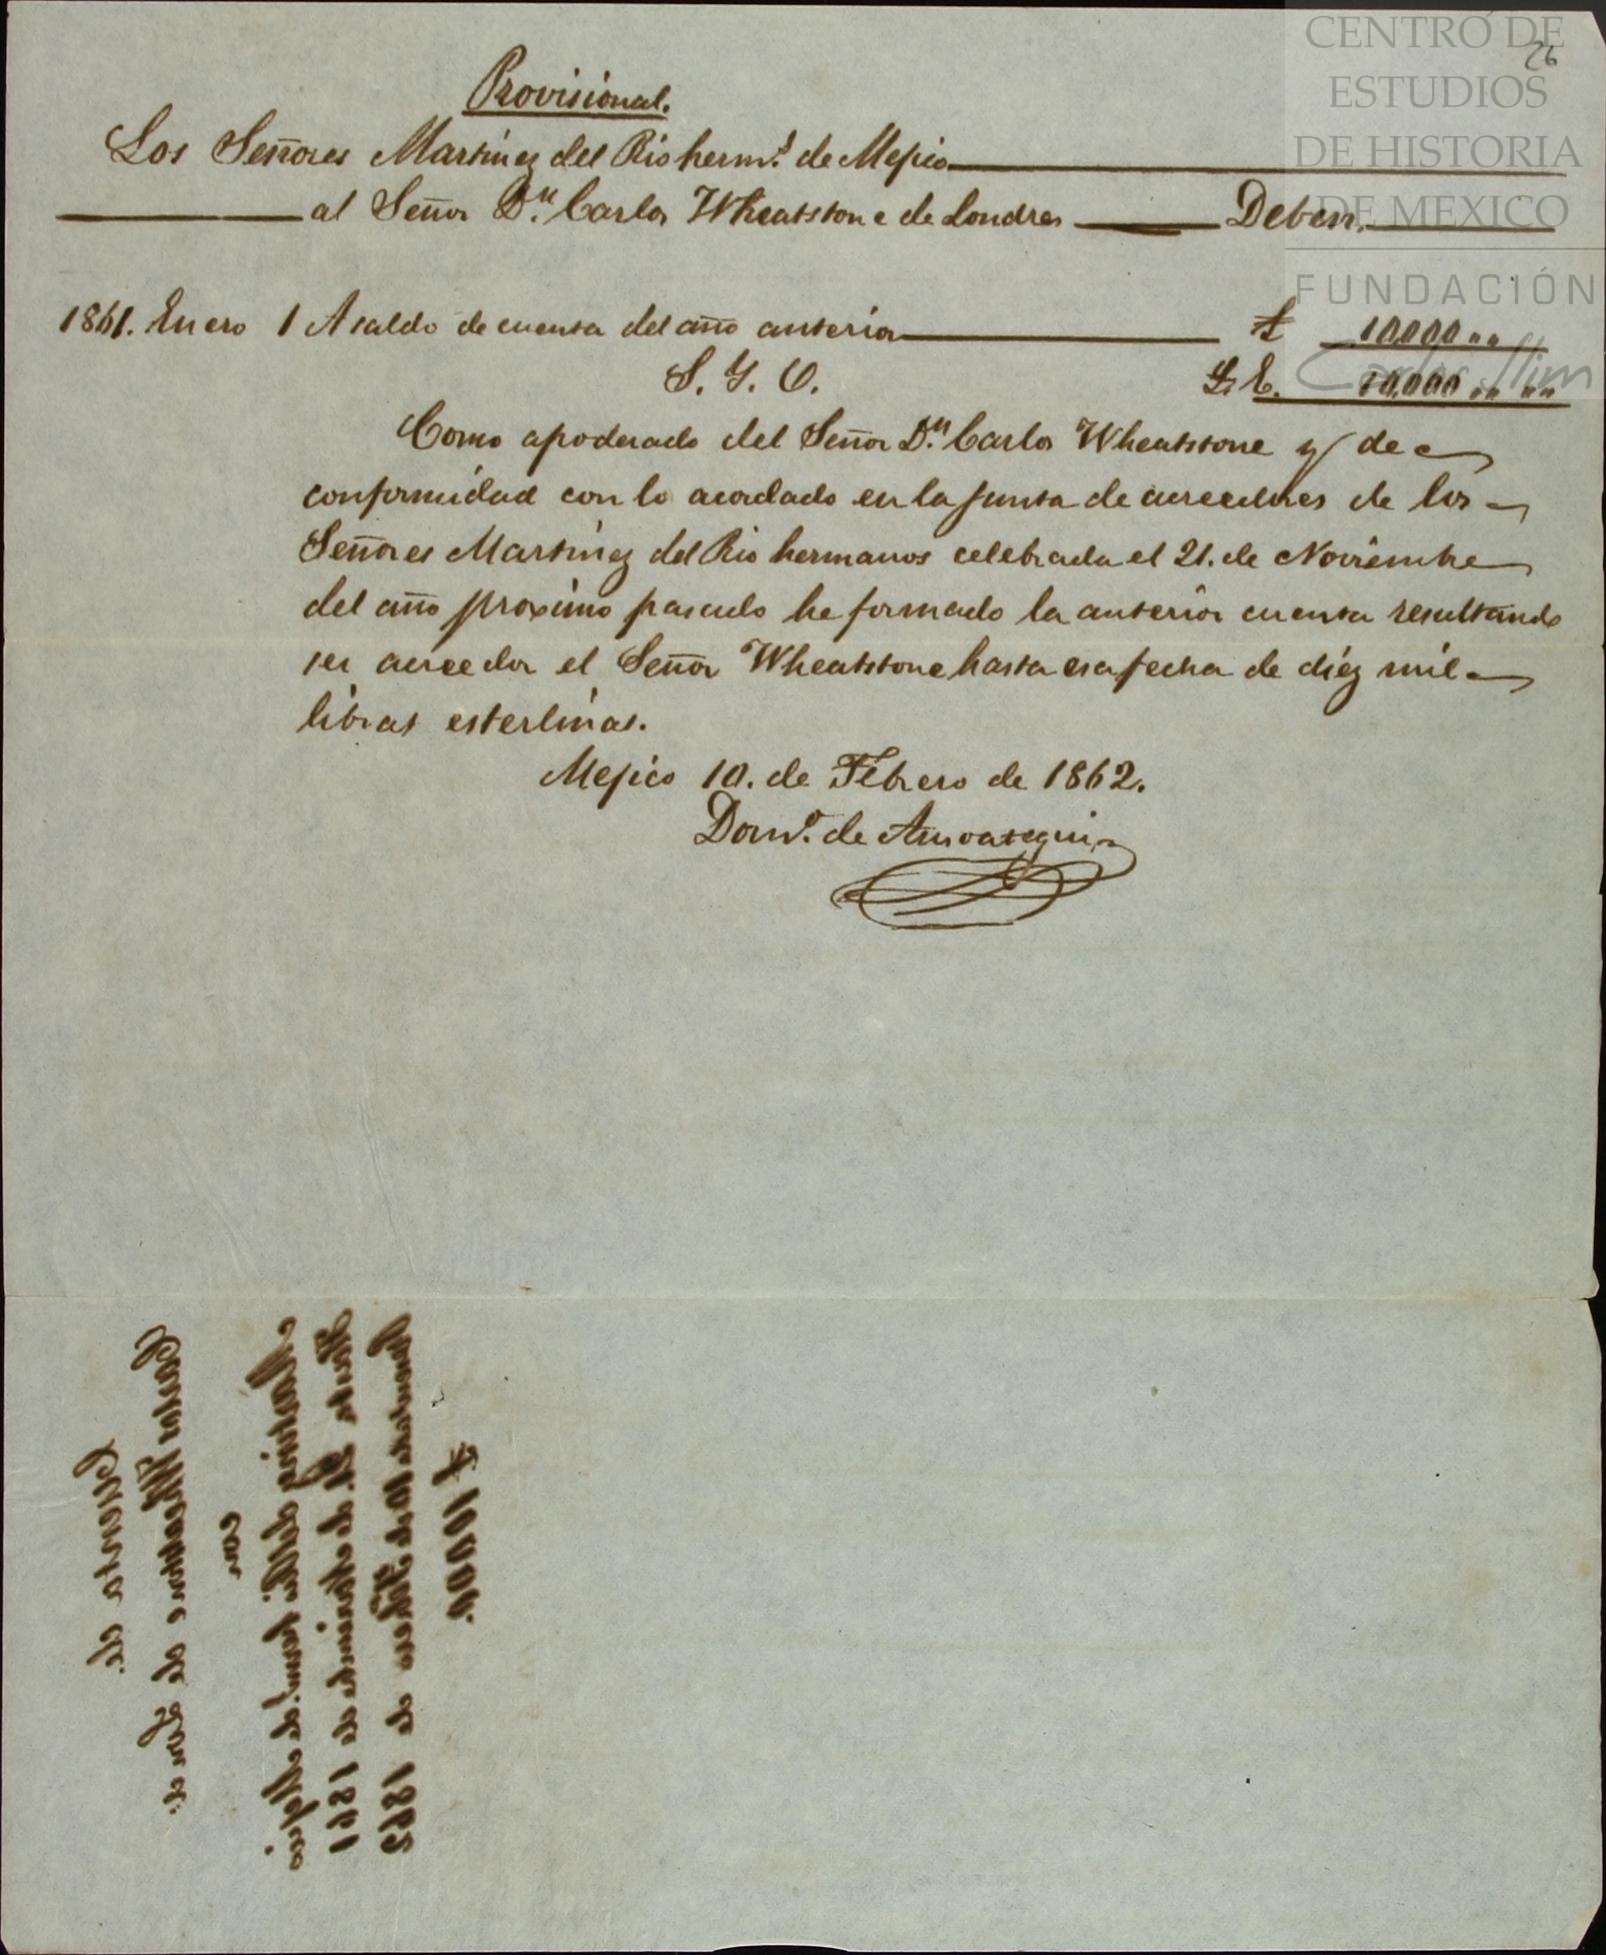 26
Provisional.
Los Señores Martinez del Rio herm.s de Mejico
al Señor D.n Carlos Wheatstone de Londres Deben.
1861. Enero 1 A saldo de cuenta del año anterior £ 10.000 „ „
S. Y. O.
£. E. 10.000 „ „ „ „
Como apoderado del Señor D.n Carlos Wheatstone y de
conformidad con lo acordado en la junta de acreedores de los
Señores Martinez del Rio hermanos celebrada el 21. de Noviembre
del año proximo pasado he formado la anterior cuenta resultando
ser acreedor el Señor Wheatstone hasta esa fecha de diez mil
libras esterlinas.
Mejico 10. de Febrero de 1862.
Dom.o de Ansoategui
Cuenta de
Carlos Wheatstone de Londres
con
Martinez del Rio herm.s de Mejico
de Noviembre de 1861
de 1862
£ 10000.
CENTRO DE
ESTUDIOS
DE HISTORIA
DE MEXICO
FUNDACIÓN
Carlos Slim